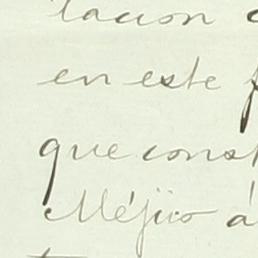 tacion
en este
que const
Méjico á